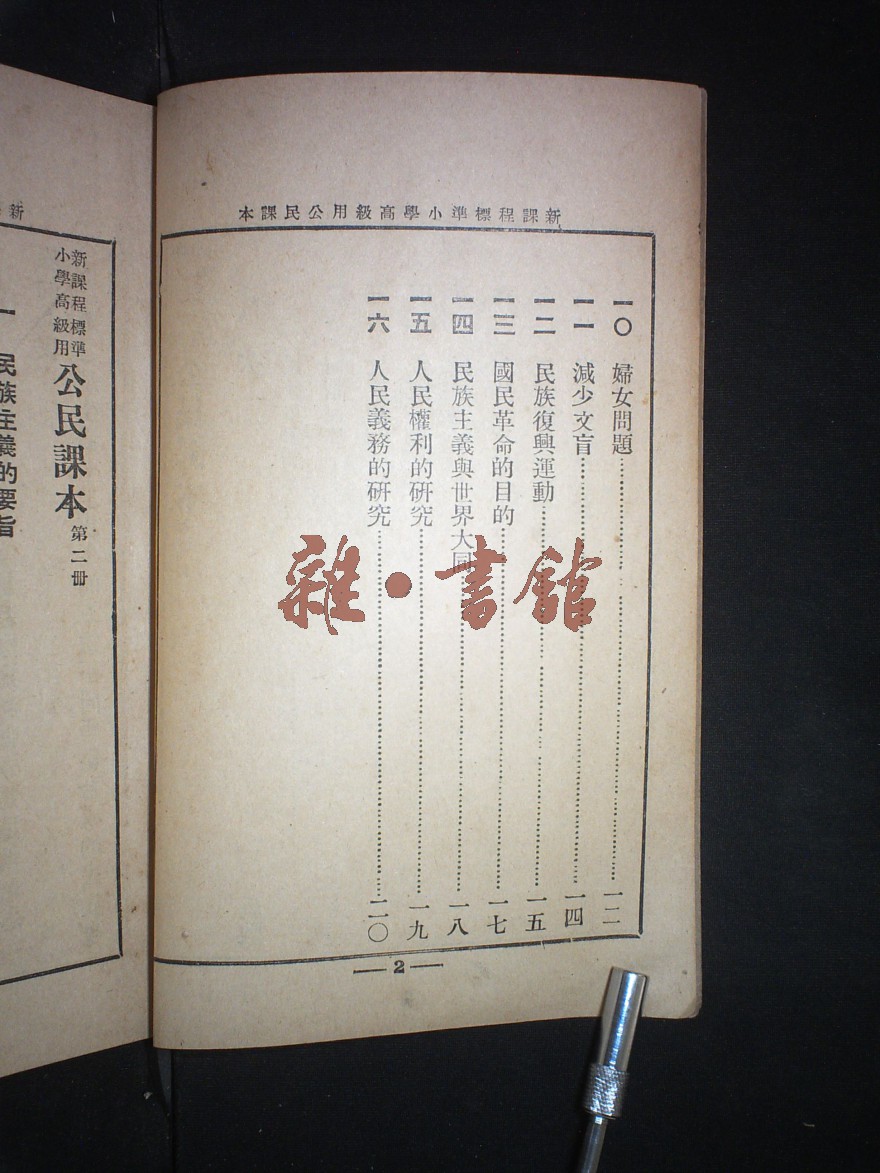 新課程標準小學高級用公民課本
一〇　婦女問題……一二
一一　減少文盲……一四
一二　民族復興運動……一五
一三　國民革命的目的……一七
一四　民族主義與世界大同……一八
一五　人民權利的研究……一九
一六　人民義務的研究……二〇
— 2 —
雜·書館
新
新課程標準
小學高級用
公民課本
第二冊
一　民族主義的要旨